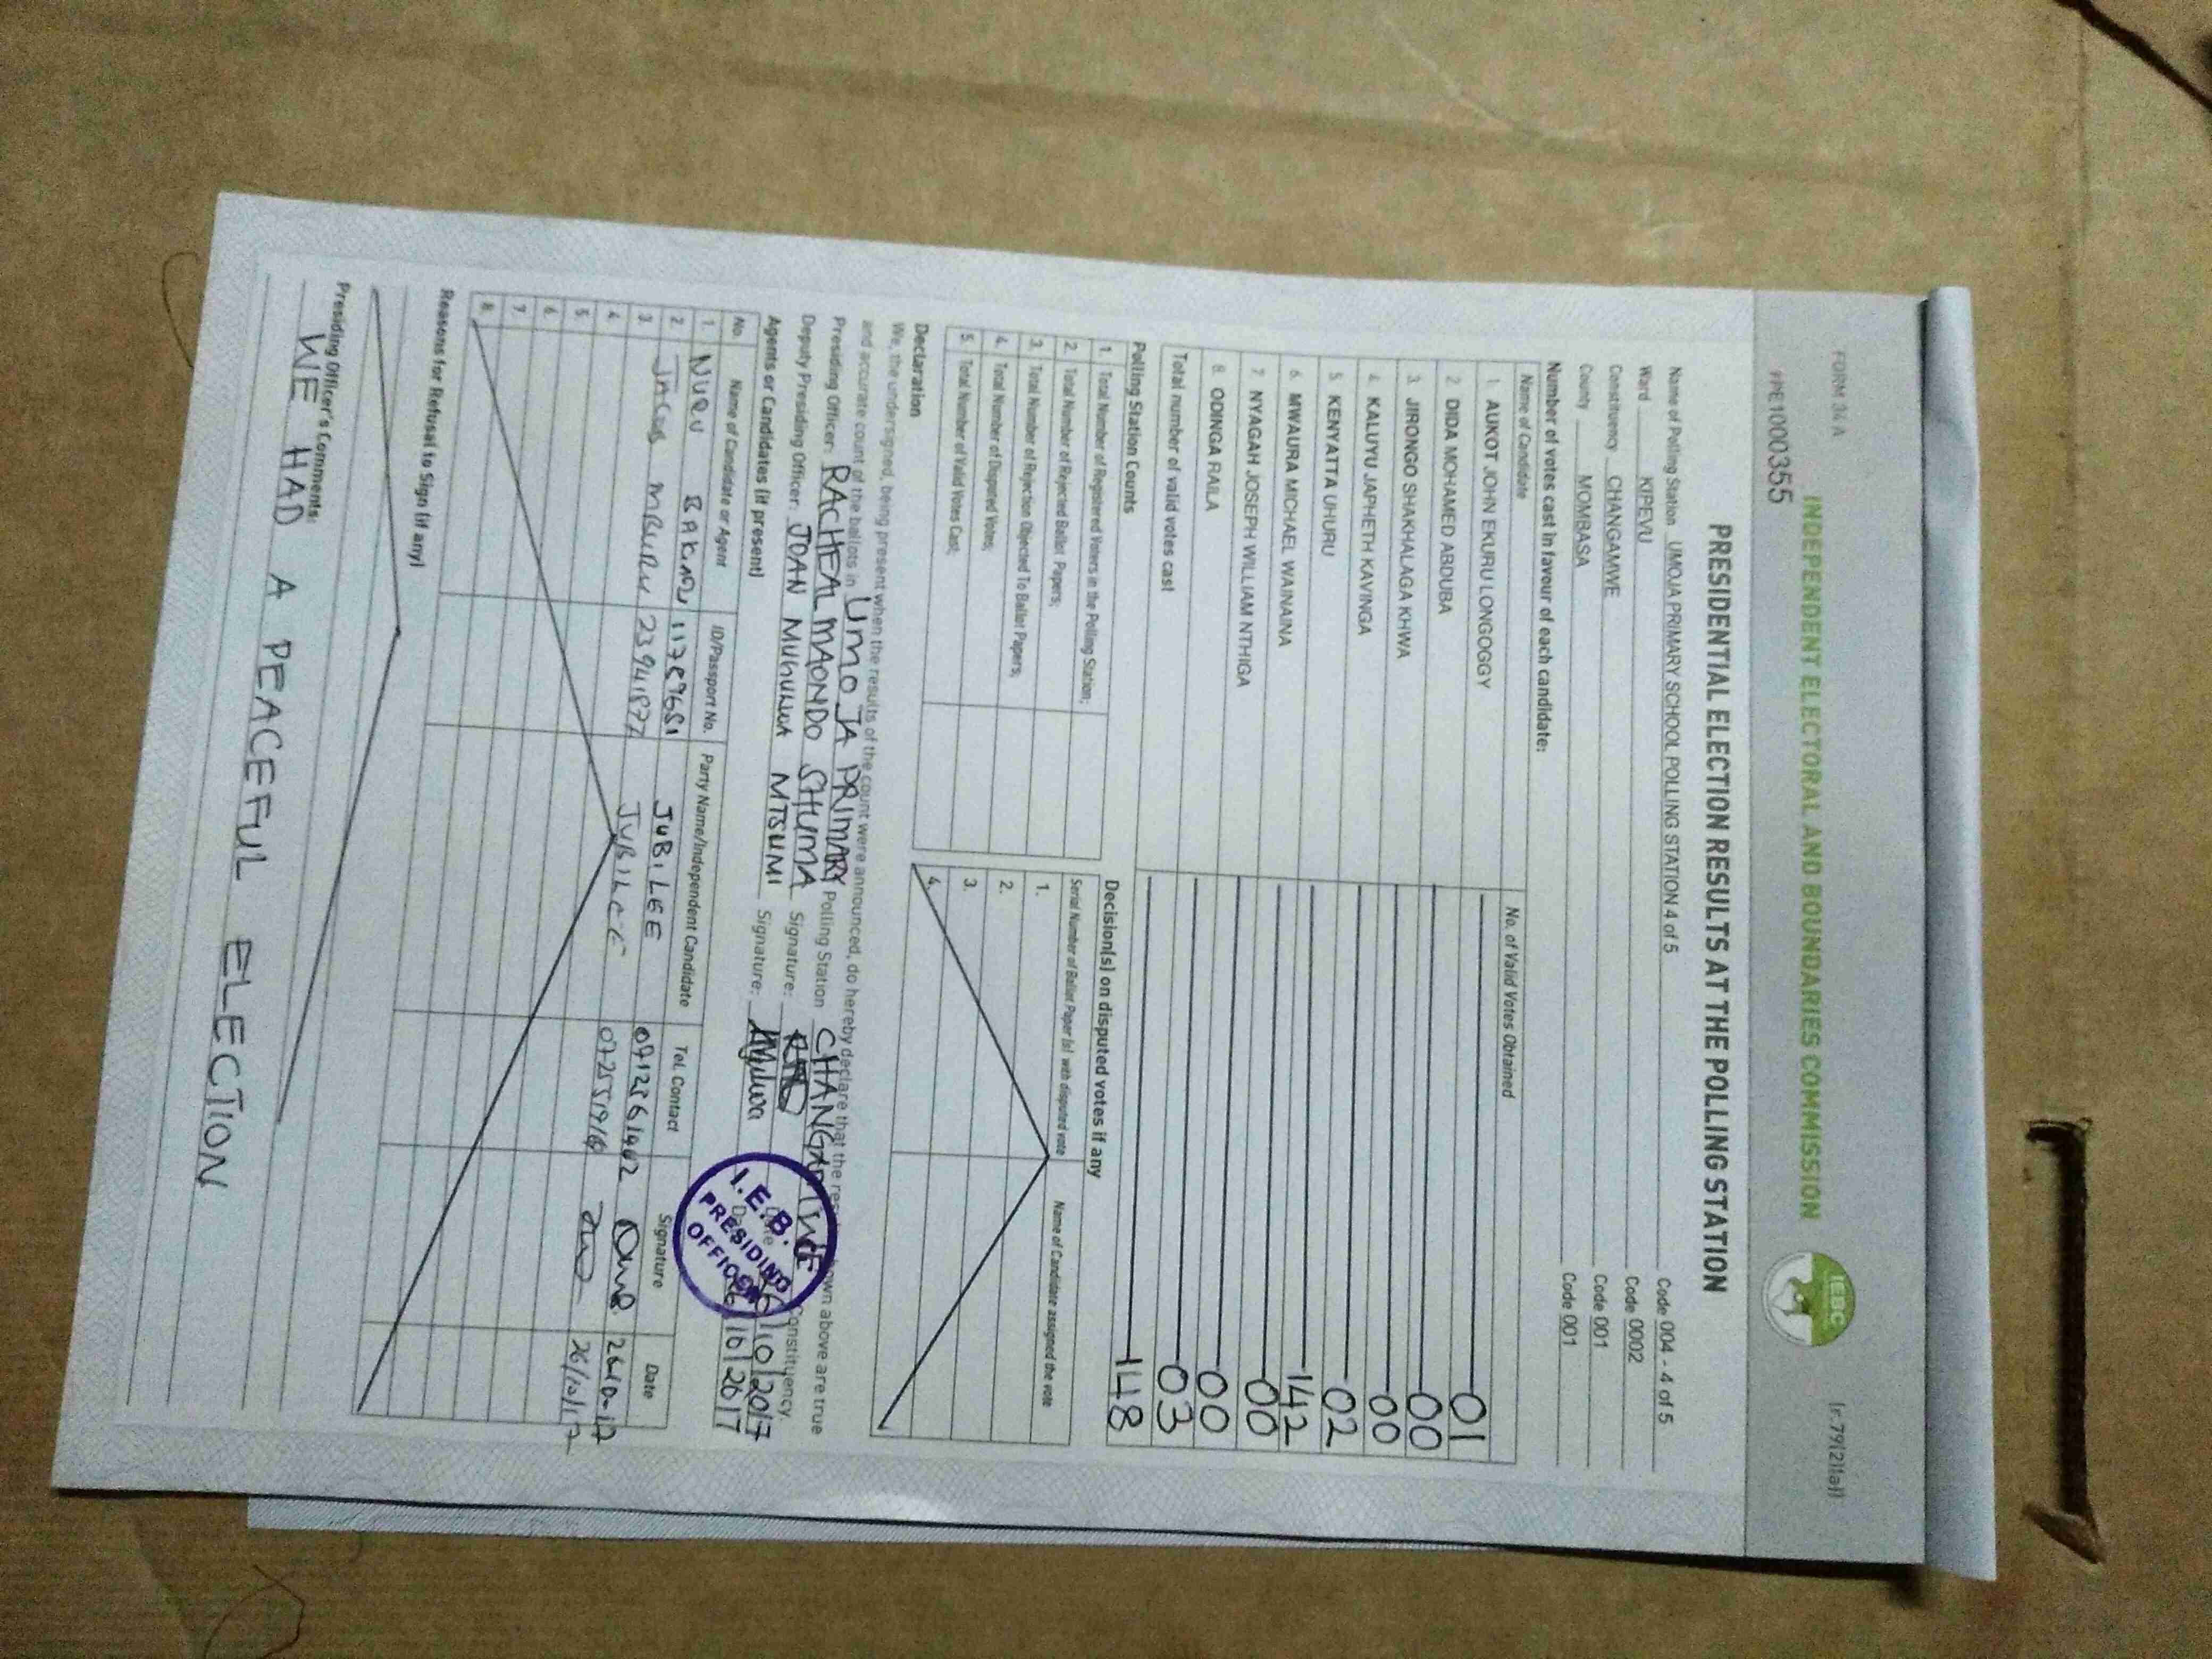 FORM 34 A
(r.79(2)(a))
INDEPENDENT ELECTORAL AND BOUNDARIES COMMISSION
IEBC
PRE1000355
PRESIDENTIAL ELECTION RESULTS AT THE POLLING STATION
Name of Polling Station UMOJA PRIMARY SCHOOL POLLING STATION 4 of 5 Code 004 - 4 of 5
Ward KIPEVU Code 0002
Constituency CHANGAMWE Code 001
County MOMBASA Code 001
Number of votes cast in favour of each candidate:
Name of Candidate No. of Valid Votes Obtained
1. AUKOT JOHN EKURU LONGOGGY 01
2. DIDA MOHAMED ABDUBA 00
3. JIRONGO SHAKHALAGA KHWA 00
4. KALUYU JAPHETH KAVINGA 02
5. KENYATTA UHURU 142
6. MWAURA MICHAEL WAINAINA 00
7. NYAGAH JOSEPH WILLIAM NTHIGA 00
8. ODINGA RAILA 03
Total number of valid votes cast 148
Polling Station Counts
1. Total Number of Registered Voters in the Polling Station;
2. Total Number of Rejected Ballot Papers;
3. Total Number of Rejection Objected To Ballot Papers;
4. Total Number of Disputed Votes;
5. Total Number of Valid Votes Cast;
Decision(s) on disputed votes if any
Serial Number of Ballot Paper (s) with disputed vote Name of Candidate assigned the vote
1.
2.
3.
4.
Declaration
We, the undersigned, being present when the results of the count were announced, do hereby declare that the results shown above are true
and accurate count of the ballots in UMOJA PRIMARY Polling Station CHANGAMWE Constituency
Presiding Officer: RACHEAL MAONDO SHUMA Signature: Date 26/10/2017
Deputy Presiding Officer: JOAN MUGUWA MTSUMI Signature: Date 26/10/2017
I.E.B.
PRESIDING
OFFICER
Agents or Candidates (if present)
No. Name of Candidate or Agent ID/Passport No. Party Name/Independent Candidate Tel. Contact Signature Date
1. NURU BAKARI JUBILEE 26-10-17
2. JACOB MBURU 23941872 JUBILEE 26/10/17
3.
4.
5.
6.
7.
8.
Reasons for Refusal to Sign (if any)
Presiding Officer's Comments:
WE HAD A PEACEFUL ELECTION